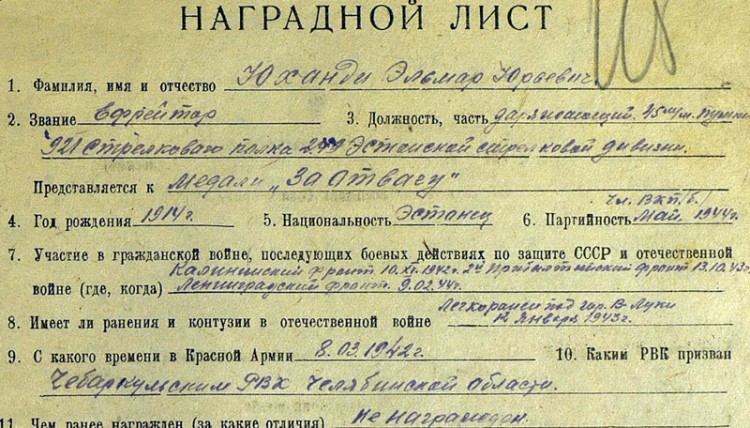 НАГРАДНОЙ ЛИСТ
1. Фамилия, имя и отчество Юханди Эльмар Юрьевич.
2. Звание ефрейтор 3. Должность, часть заряжающий 45 м/м. пушки
921 Стрелкового полка 249 Эстонской стрелковой дивизии.
Представляется к медали „За Отвагу"
Чл. ВКП/б/
4. Год рождения 1914 г. 5. Национальность Эстонец 6. Партийность Май 1944 г.
7. Участие в гражданской войне, последующих боевых действиях по защите СССР и отечественной
Калининский фронт 10.XI.1942 г. 2й Прибалтийский фронт 13.10.43 г.
войне (где, когда) Ленинградский фронт. 9.02.44 г.
Легкоранен под гор. В-Луки
8. Имеет ли ранения и контузии в отечественной войне 12 Января 1943 г.
9. С какого времени в Красной Армии 8.03.1942 г. 10. Каким РВК призван
Чебаркульским РВК Челябинской области.
11. Чем ранее награжден (за какие отличия) Не награжден.